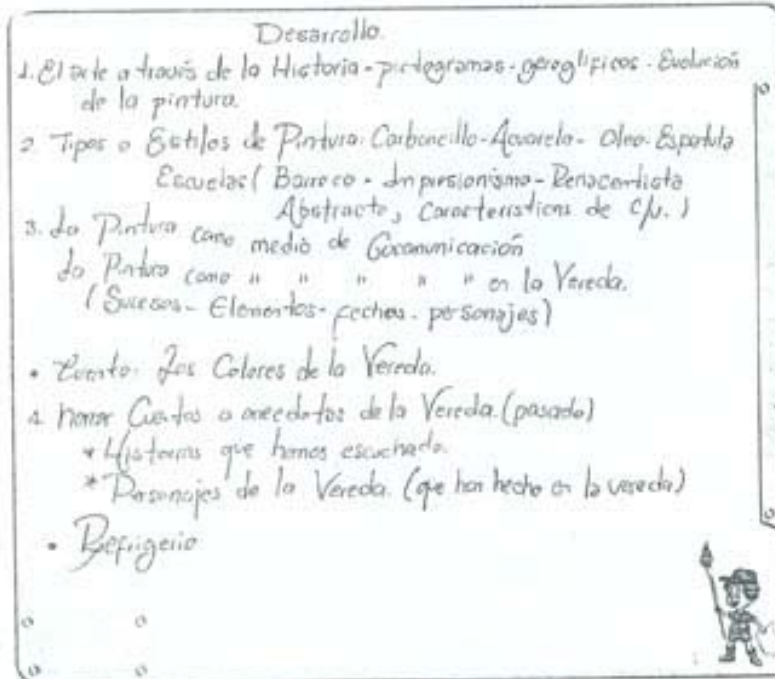 Desarrollo.
1. El arte a través de la Historia - pictogramas - geroglificos - Evolución
de la pintura.
2 Tipos o Estilos de Pintura. Carboncillo - Acuarela - Oleo. Espatula
Escuelas ( Barroco - Impresionismo - Renacentista
Abstracto, Caracteristicas de c/u. )
3. La Pintura como medio de Cocomunicación
La Pintura como " " " " " en la Vereda.
( Sucesos - Elementos - fechas - personajes )
• Cuento. Los Colores de la Vereda.
4. Narrar Cuentos o anecdotas de la Vereda. (pasado)
* Historias que hemos escuchado.
* Personajes de la Vereda. (que han hecho en la vereda)
• Refrigerio